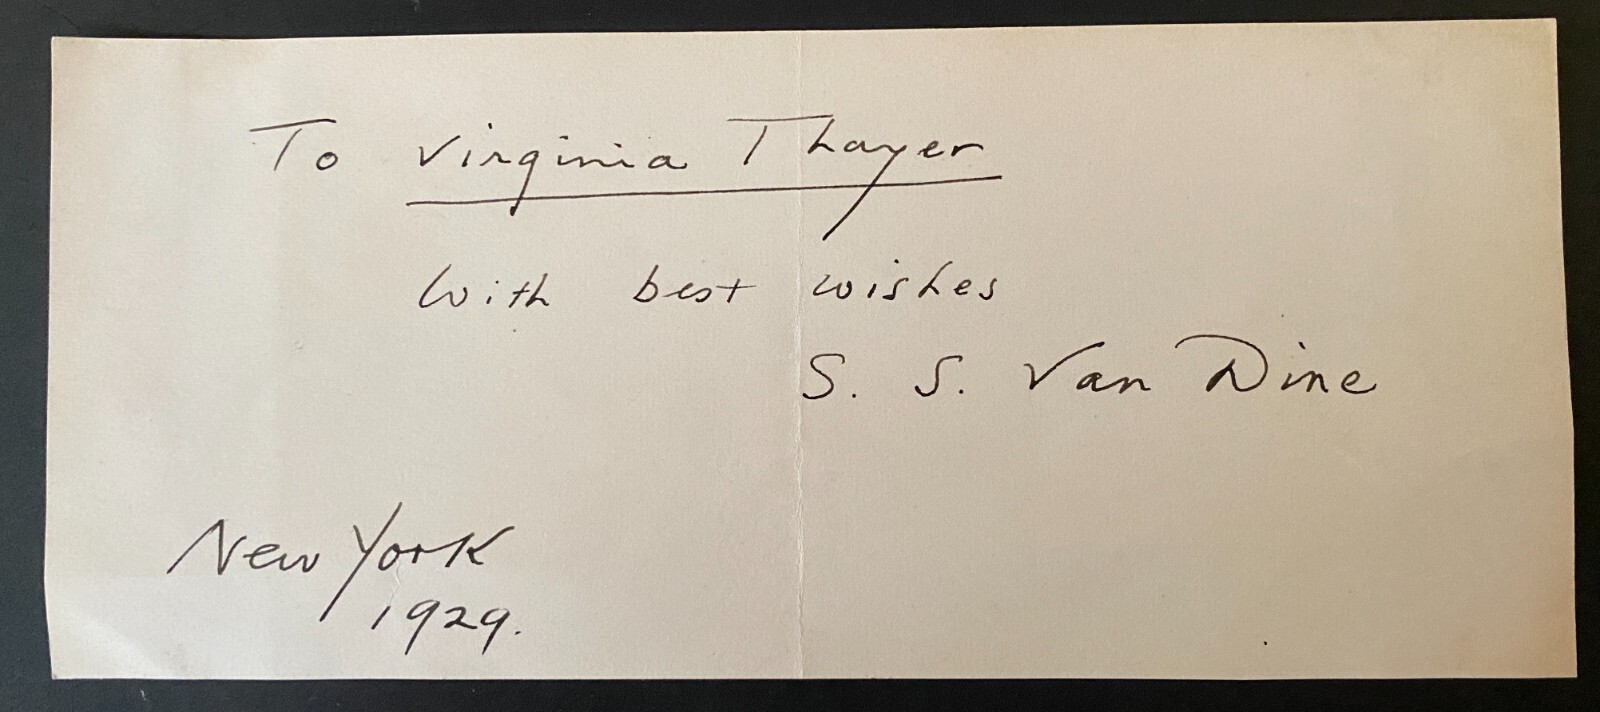 To Virginia Thayer
With best wishes
S. S. Van Dine
New York
1929.